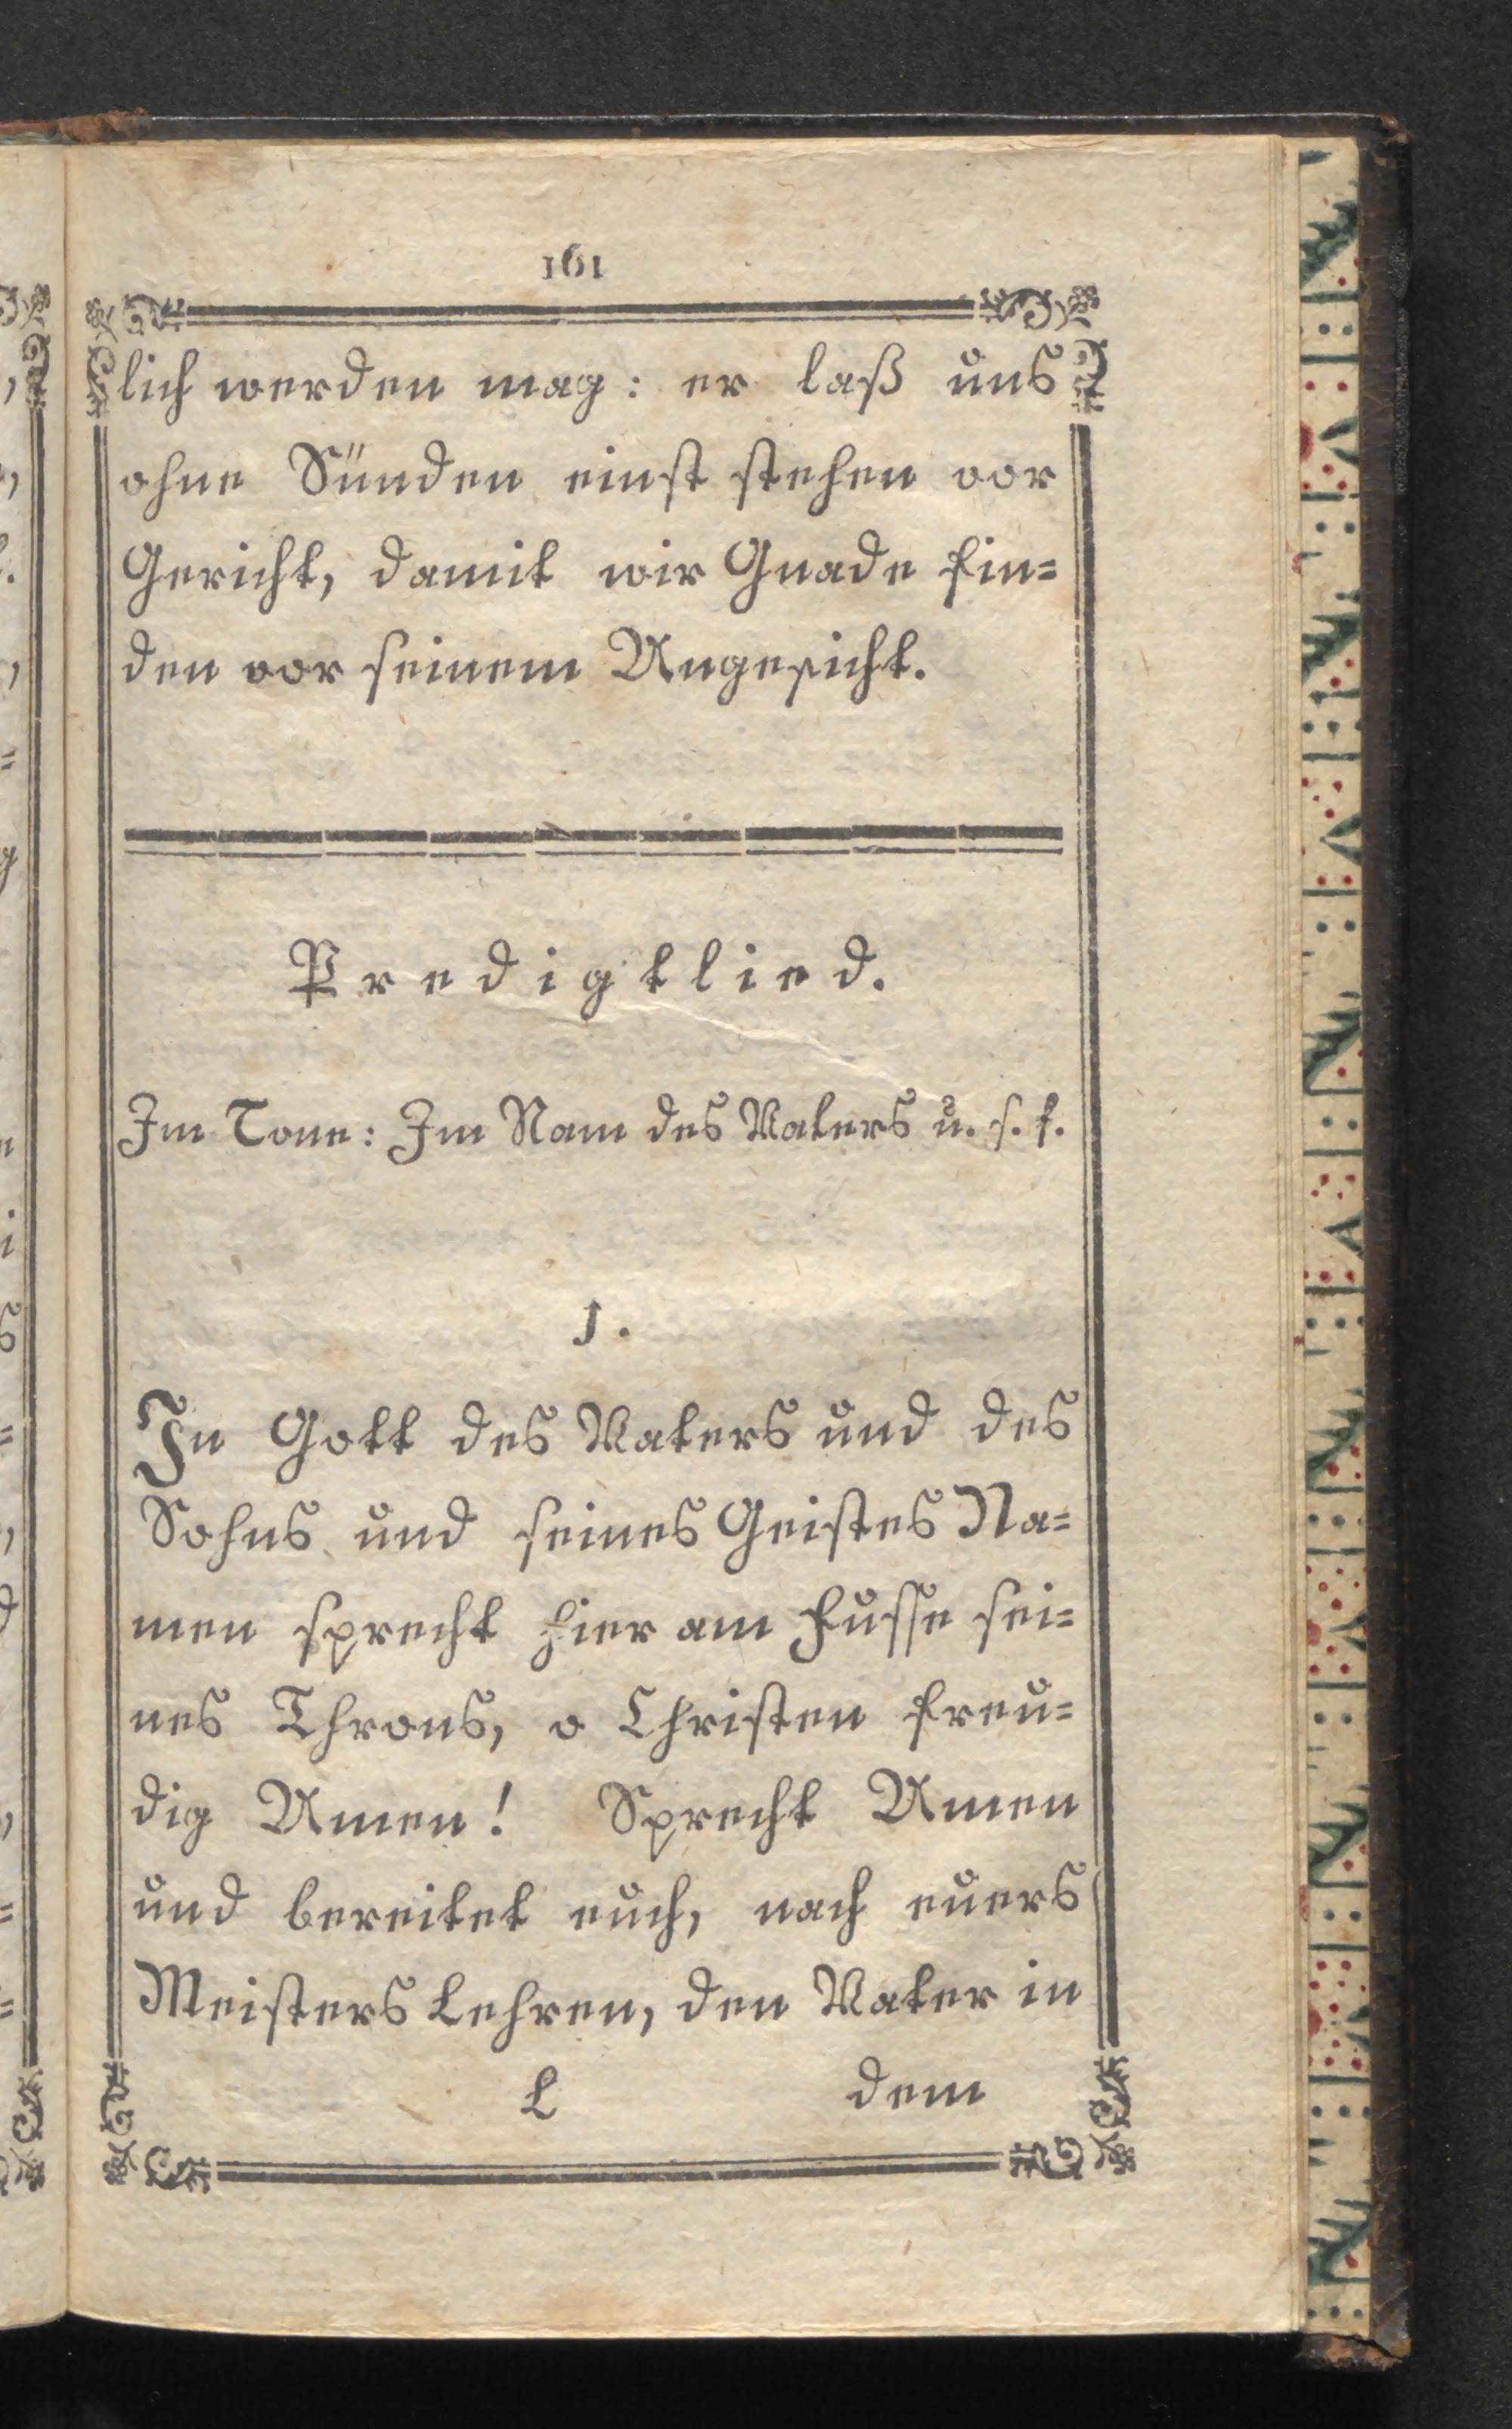 161
lich werden mag: er laß uns
ohne Sünden einst stehen vor
Gericht, damit wir Gnade fin=
den vor seinem Angesicht.
Predigtlied.
Im Tone: Im Nam des Vaters u. s. f.
1.
In Gott des Vaters und des
Sohns und seines Geistes Na=
men sprecht hier am Fusse sei=
nes Throns, o Christen freu=
dig Amen! Sprecht Amen
und bereitet euch, nach euers
Meisters Lehren, den Vater in
L dem